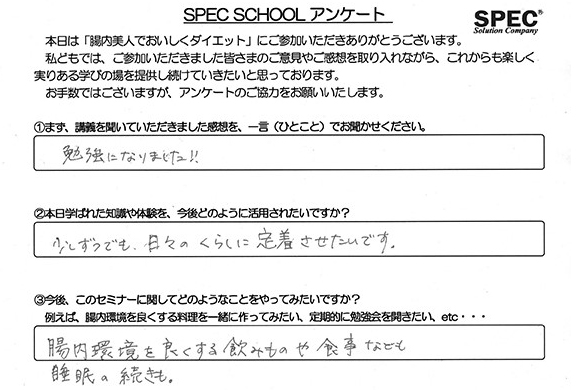 SPEC SCHOOL アンケート
SPEC®
Solution Company
本日は「腸内美人でおいしくダイエット」にご参加いただきありがとうございます。
私どもでは、ご参加いただきました皆さまのご意見やご感想を取り入れながら、これからも楽しく
実りある学びの場を提供し続けていきたいと思っております。
お手数ではございますが、アンケートのご協力をお願いいたします。
①まず、講義を聞いていただきました感想を、一言（ひとこと）でお聞かせください。
勉強になりました!!
②本日学ばれた知識や体験を、今後どのように活用されたいですか？
少しずつでも、日々のくらしに定着させたいです。
③今後、このセミナーに関してどのようなことをやってみたいですか？
例えば、腸内環境を良くする料理を一緒に作ってみたい、定期的に勉強会を開きたい、etc・・・
腸内環境を良くする飲みものや食事なども
睡眠の続きも。